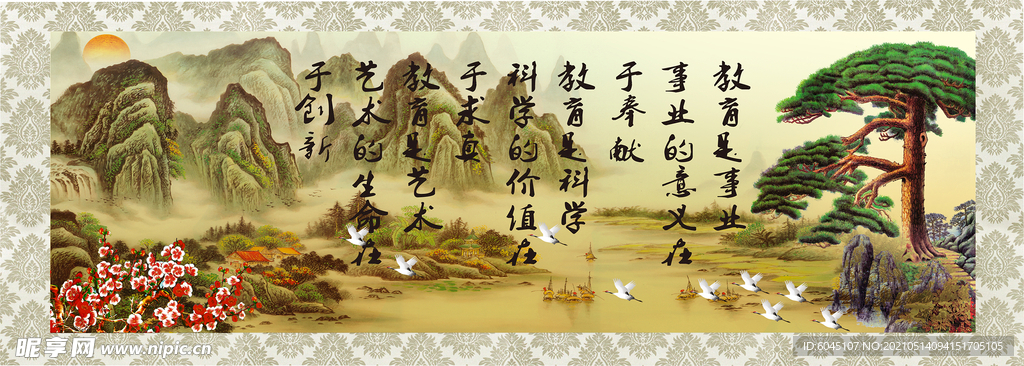 教育是事业
事业的意义在
于奉献
教育是科学
科学的价值在
于求真
教育是艺术
艺术的生命在
于创新
昵享网 www.nipic.cn
ID:6045107 NO:20210514094151705105